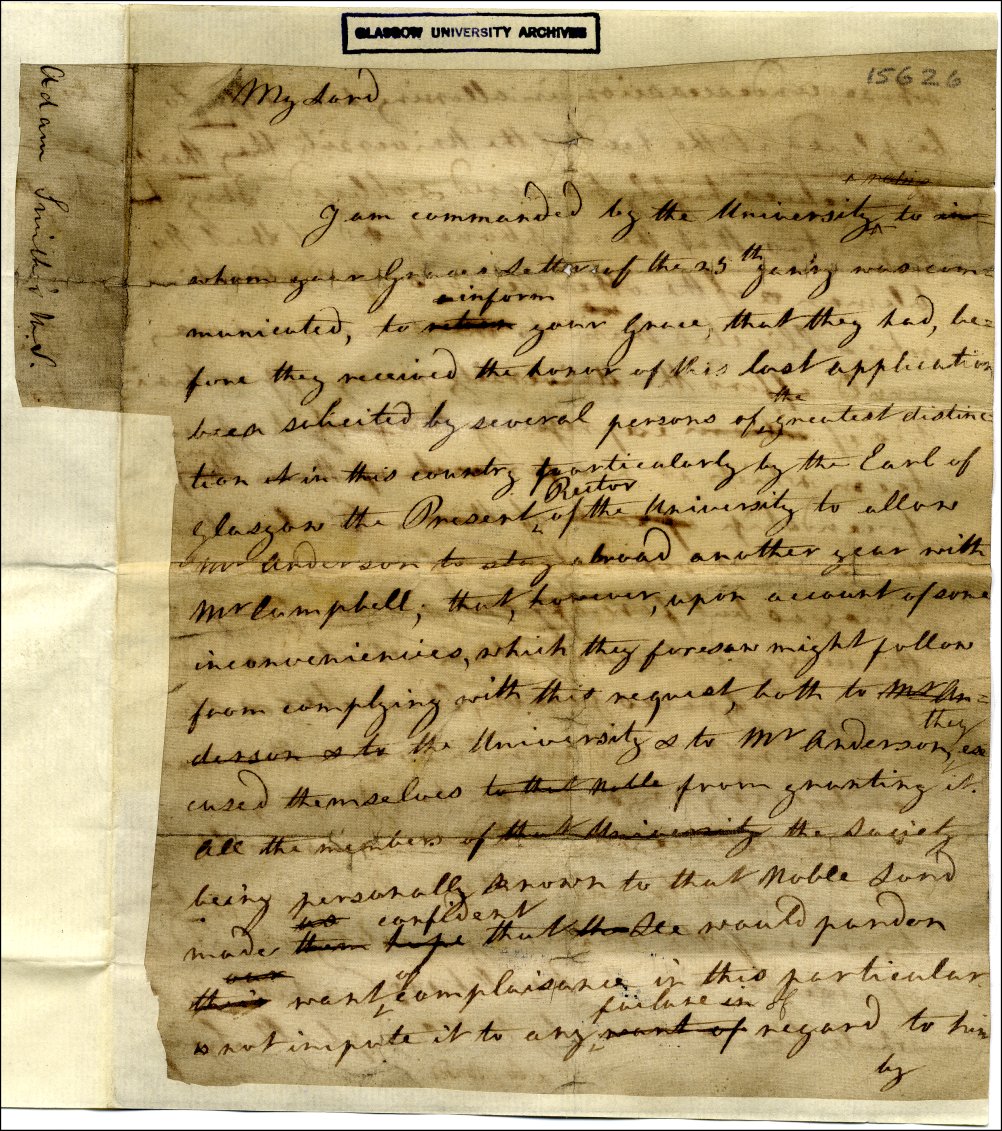 GLASGOW UNIVERSITY ARCHIVES
15626
Adam Smith's M.S.
My Lord
I am commanded by the University, to in
whom your Graces Letter of the 25th Janry was com=
inform
municated, to return your Grace, that they had, be=
fore they received the honor of this last application
the
been solicited by several persons of greatest distinc=
tion in this country particularly by the Earl of
Rector
Glasgow the Present of the University to allow
Mr Anderson to stay abroad another year with
Mr Campbell; that, however, upon account of some
inconveniencies, which they foresaw might follow
from complying with this request, both to Mr An=
they
derson & to the University & to Mr Anderson, ex
cused themselves to that Noble from granting it.
All the members of that University the Society
being personally known to that Noble Lord
us confident
made them hope that the He would pardon
our of
their want complaisance in this particular
failure in of
& not impute it to any want of regard to him
by